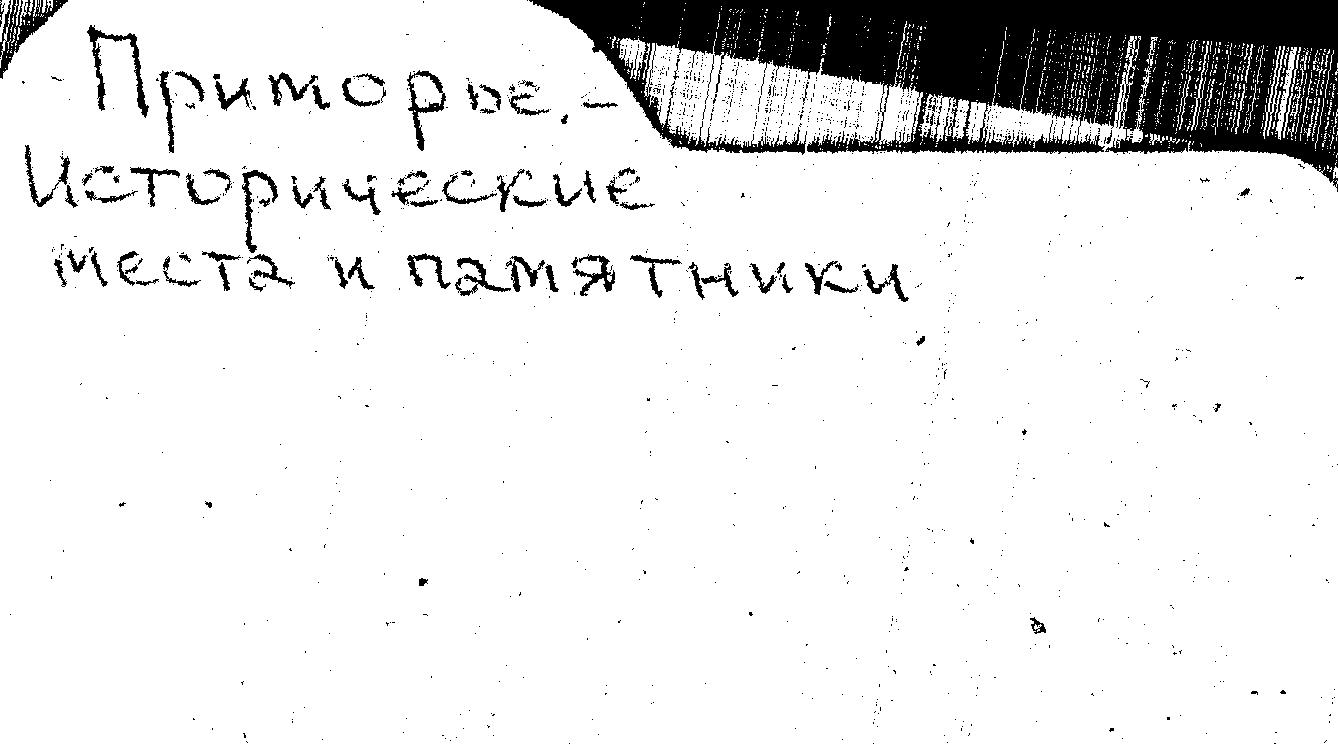 Приморье.–
Исторические
места и памятники